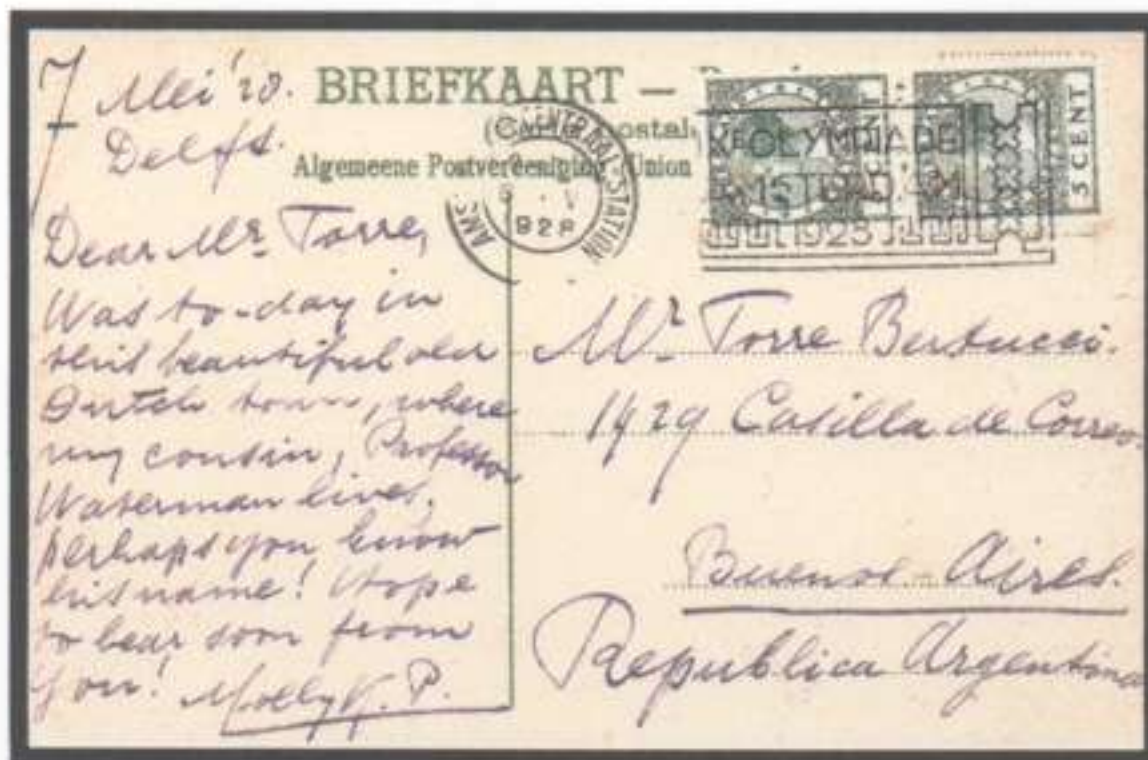 7 Mei '28.
Delft.
BRIEFKAART —
Algemeene Postvereeniging Union
CENTRAAL-STATION
1928
OLYMPIADE
AMSTERDAM
1928
3 CENT
Dear Mr. Torre,
Was to-day in
this beautiful old
Dutch town, where
my cousin, Professor
Waterman lives,
perhaps you know
his name! Hope
to hear soon from
you! Molly K. P.
Mr. Torre Bertucci.
1429 Casilla de Correo
Buenos-Aires.
Republica Argentina